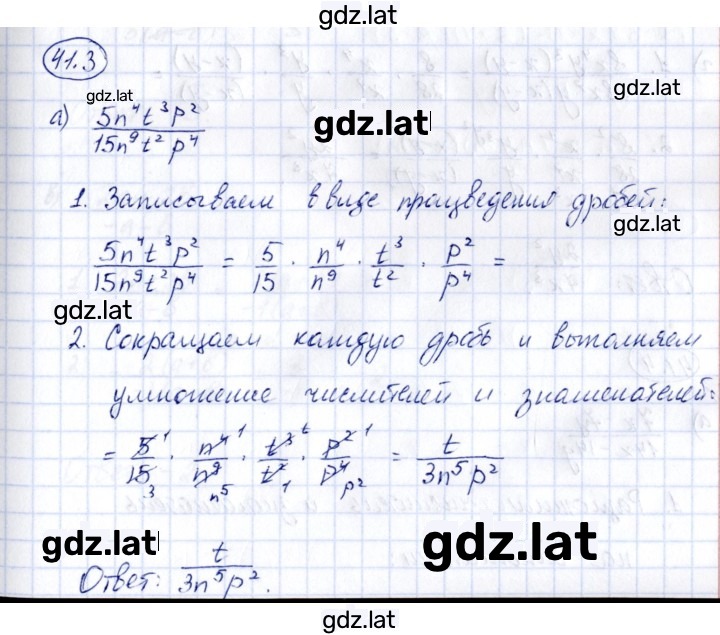 gdz.lat
41.3
gdz.lat
а) 5n⁴t³p² / 15n⁹t²p⁴
gdz.lat
1. Записываем в виде произведения дробей:
gdz.lat
5n⁴t³p² / 15n⁹t²p⁴ = 5/15 · n⁴/n⁹ · t³/t² · p²/p⁴ =
gdz.lat
2. Сокращаем каждую дробь и выполняем
умножение числителей и знаменателей:
= 5¹/15₃ · n⁴ ¹/n⁹ n⁵ · t³ t/t² 1 · p² ¹/p⁴ p² = t / 3n⁵p²
gdz.lat
gdz.lat
Ответ: t / 3n⁵p².
gdz.lat